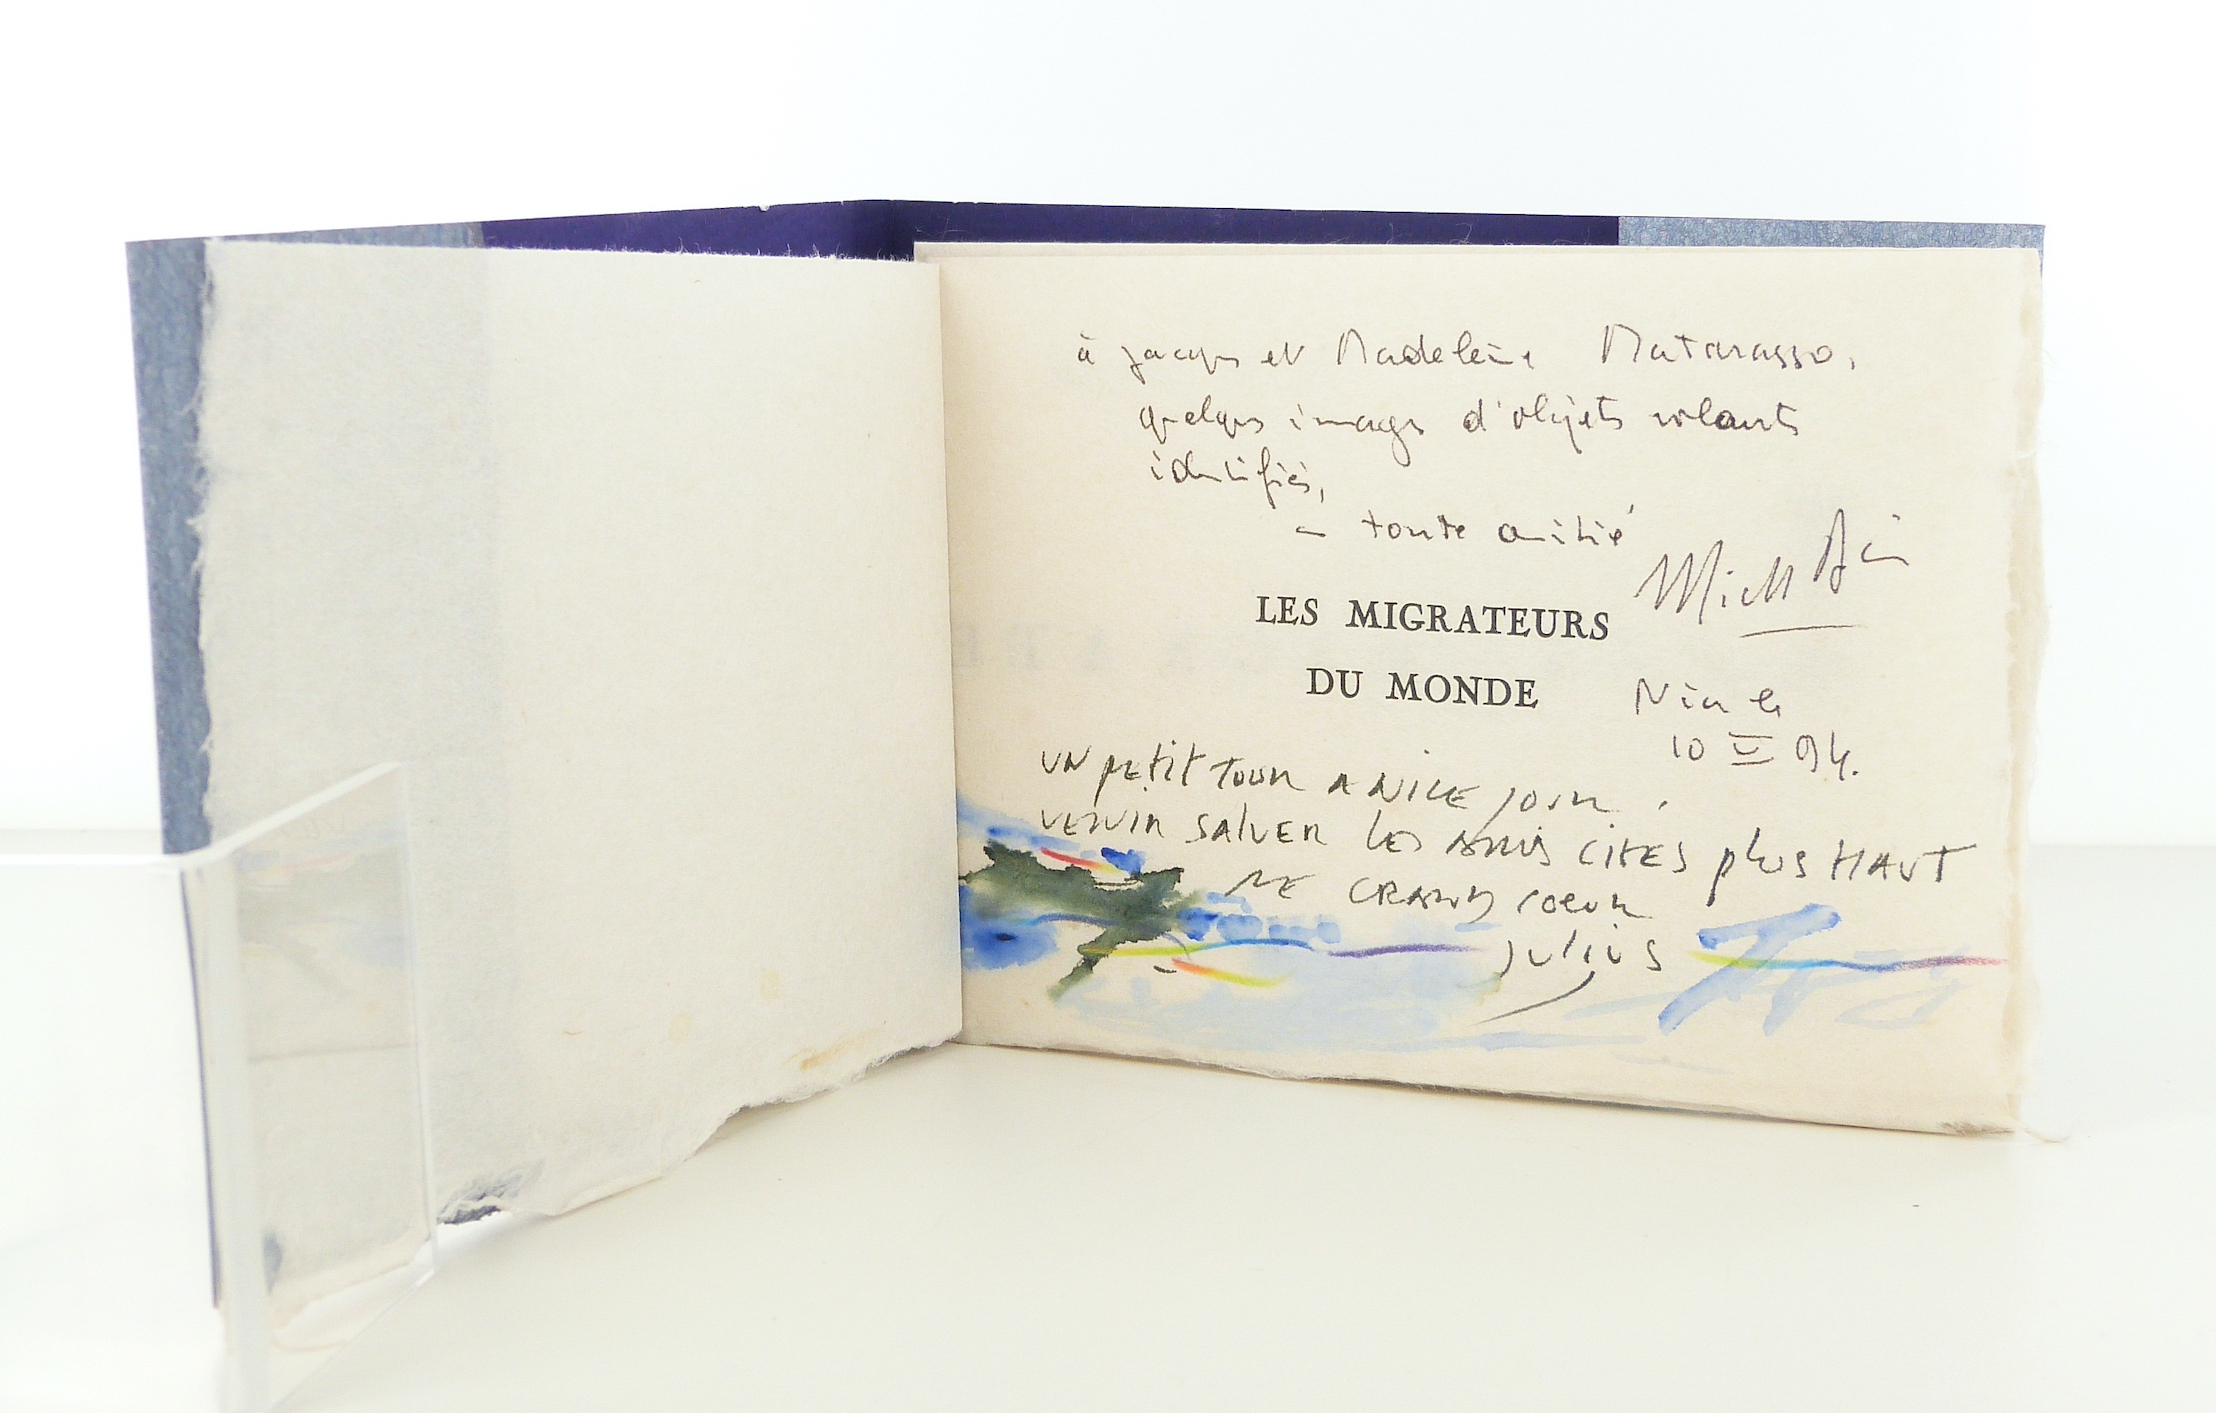 à Jacques et Madeleine Matarasso,
quelques images d'objets volants
identifiés,
toute amitié
Michel
LES MIGRATEURS
DU MONDE
Nice le
10 V 94.
UN PETIT TOUR A NICE POUR
VENIR SALUER LES AMIS CITES PLUS HAUT
DE GRAND COEUR
JULIUS